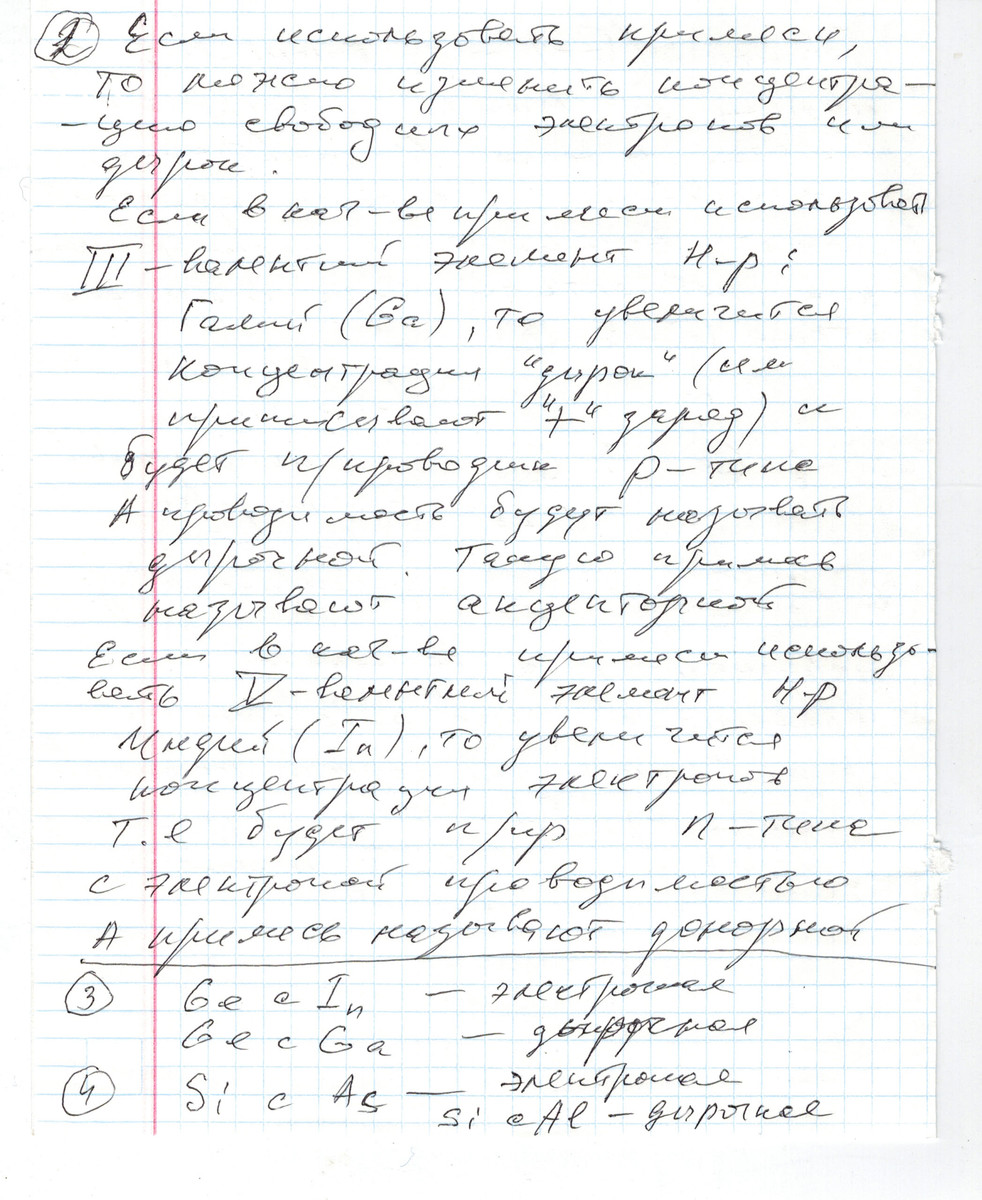 2 Если использовать примеси,
то можно изменить концентра-
-цию свободных электронов или
дырок.
Если в кач-ве примеси использоват
III-валентный элемент Н-р:
Галий (Ga), то увеличится
концентрация "дырок" (им
приписывают "+" заряд) и
будет п/проводник p-типа
А проводимость будут называть
дырочной. Такую примесь
называют акцепторной
Если в кач-ве примеси использо-
вать V-валентный элемент Н-р
Индий (In), то увеличится
концентрация электронов
Т.е будет п/пр n-типа
с электроной проводимостью
А примесь называют донорной
3 Ge с In — электроная
Ge с Ga — дырочная
4 Si с As — электроная
Si с Al - дырочная